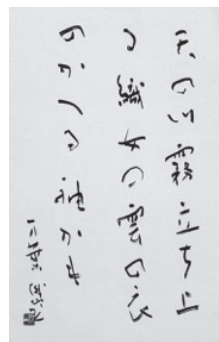 天の川霧立ち上
る織女の雲の衣
のかへる袖かも